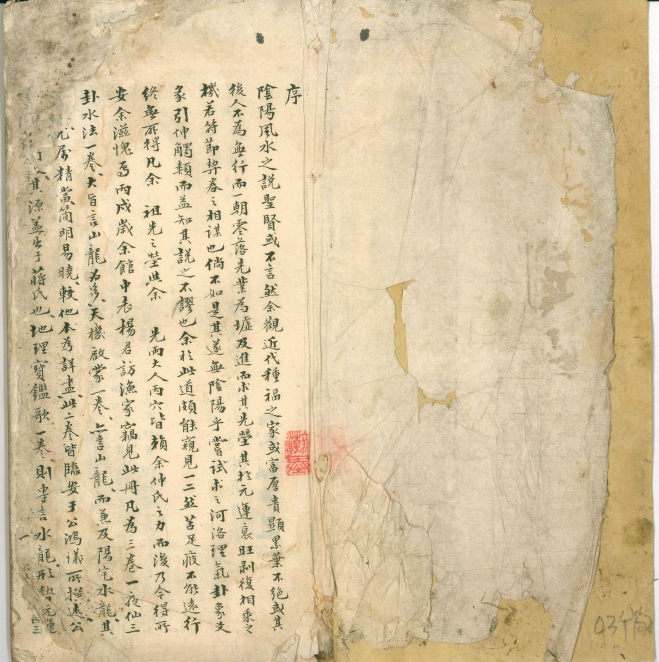 序
陰陽風水之説聖賢或不言然余觀近代種福之家或富厚貴顯累葉不絶或其
後人不為無行而一朝零落先業為墟及進而求其先塋其於元運衰旺剥復相乘之
機若符節契券之相謀也倘不如是其遂無陰陽乎嘗試求之河洛理氣卦象爻
象引伸觸類而益知其説之不謬也余於此道頗能窺見一二然苦足疲不能遠行
終無所得凡余 祖先之塋與余 先両大人丙穴皆賴余仲氏之力而後乃今得所
安余滋愧焉丙戌歲余館中表楊君訪漁家竊見此冊凡為三卷一夜仙三
卦水法一卷大旨言山龍為多天機啟蒙一卷亦言山龍而兼及陽宅水龍其
尤属精當簡明易曉較他本為詳盡此二卷皆臨安于公鴻儀所撰述公
其源蓋出于蔣氏也地理寶鑑歌一卷則専言水龍形勢元運
43筒